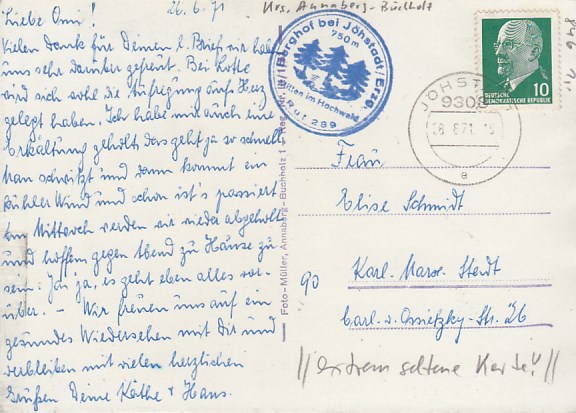 26.6.71
Krs. Annaberg-Buchholz
Liebe Omi!
Vielen Dank für Deinen l. Brief wir haben
uns sehr darüber gefreut. Bei Lotte
wird sich wohl die Aufregung aufs Herz
gelegt haben. Ich habe mir auch eine
Erkältung geholt, das geht ja so schnell
man schwitzt und dann kommt ein
kühler Wind und schon ist's passiert
Am Mittwoch werden wir wieder abgeholt
und hoffen gegen Abend zu Hause zu
sein. Ja ja, es geht eben alles vor-
über. - Wir freuen uns auf ein
gesundes Wiedersehen mit Dir und
verbleiben mit vielen herzlichen
Grüßen Deine Käthe + Hans.
Foto-Müller, Annaberg-Buchholz 1
Berghof bei Jöhstadt/Erzg.
750 m
Mitten im Hochwald
Ruf 289
JÖHSTADT
9308
26.6.71
a
10
DEUTSCHE
DEMOKRATISCHE REPUBLIK
Frau
Elise Schmidt
90 Karl-Marx-Stadt
Carl-v.-Ossietzky-Str. 26
//extrem seltene Karte!!//